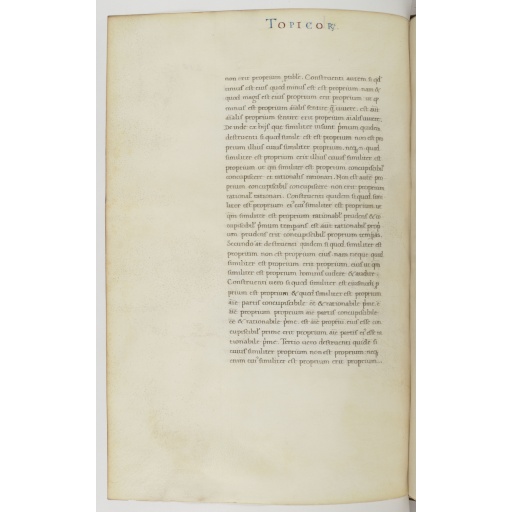 TOPICOꝜ
non erit proprium proble. Construenti autem si qd
minus est eius quod minus est est proprium nam &
quod magis est eius proprium erit proprium ut qm
minus est proprium aialis sentire qm uiuere. est aut
aialis proprium sentire erit proprium aialis uiuere.
De inde ex hijs que similiter insunt primum quidem
destruenti si quod simile est est proprium non est pro
prium illius cuius similiter proprium. neque quod
similiter est proprium erit illius cuius similiter est
proprium ut qm similiter est proprium concupiscibilis
concupiscere et rationalis rationari. Non est autem pro
prium concupiscibilis concupiscere non erit proprium
rationalis rationari. Construenti quidem si quod simi
liter est proprium eius cuius similiter est proprium ut
qm similiter est proprium rationabilis prudens & con
cupiscibilis primum temperans est aut rationabilis propri
um prudens erit concupiscibilis temperans.
Secundo aut destruenti quidem si quod similiter est
proprium non est proprium eius nam neque quod
similiter est proprium erit proprium. eius ut qm
similiter est proprium hominis uidere & audire
Construenti uero si quod similiter est eiusmodi pro
prium est proprium & quod similiter est proprium
aie partis concupiscibile ee & rationabile prime. est
aie proprium proprium aie partis concupiscibile
ee & rationabile prime. est aie proprium eius esse con
cupiscibilis prime erit proprium aie partis eius esse ra
tionabile prime. Tertio uero destruenti quidem si
cuius similiter proprium non est proprium neque
enim cuius similiter est proprium erit proprium